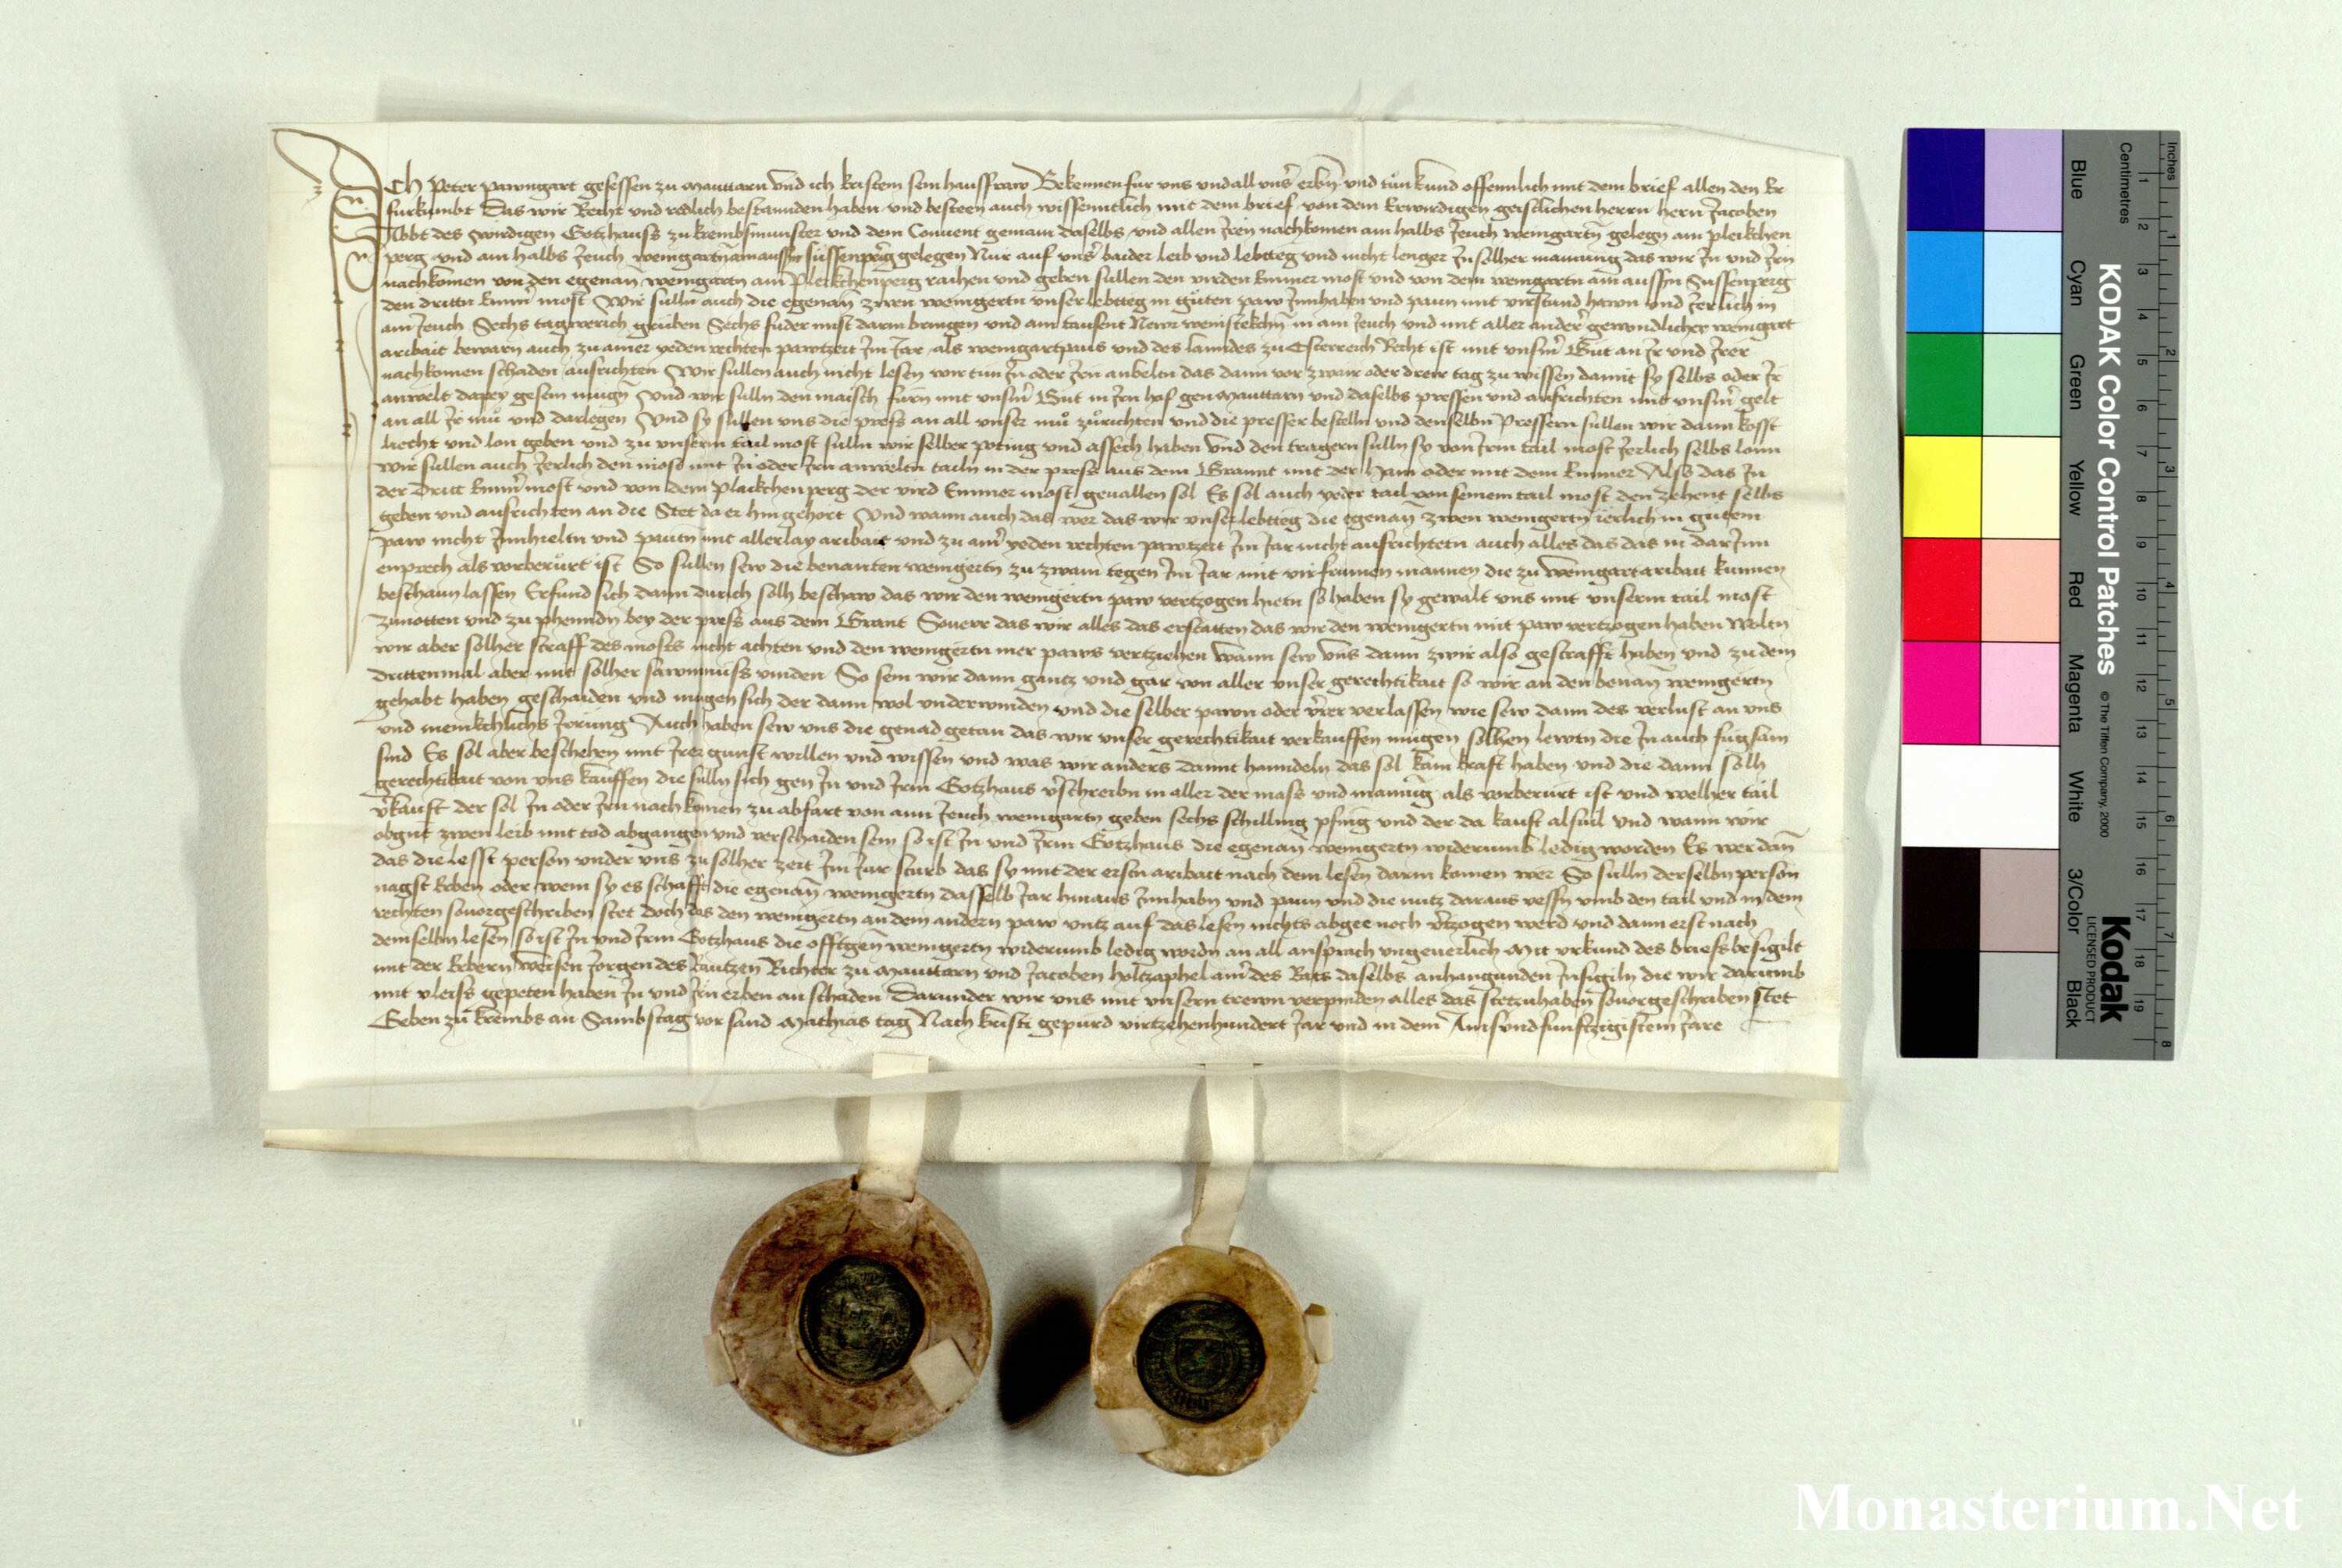 Ich Peter pawmgart gesessen zu Mauttarn vnd ich kristein sein hausfraw Bekennen fur vns vnd all vnser erbn vnd tun kund offennlich mit dem brief allen den Er
furkumbt Das wir Recht vnd redlich bestannden haben vnd besteen auch wissenntlich mit dem brief von dem Erwirdigen geistlichen herrn hern Jacoben
Abbt des wirdigen Gotzhauss zu krembsmunster vnd dem Conuent gemain daselbs vnd allen Jren nachkomen ain halbs Jeuch weingartn gelegn am pleikchen
perg vnd ain halbs Jeuch weingartn am aussern sussenperg gelegen Nur auf vnser baider leib vnd lebtteg vnd nicht lenger Jn solher mainung das wir Jn vnd Jrn
nachkomen von den egenan weingartn am Pleikchenperg raichen vnd geben sullen den virden Emmer most vnd von dem weingartn am aussern Sussenperg
den drittn Emer most Wir sulln auch die egenan zwen weingertn vnser lebtteg in guten paw Jnnhaben vnd paun mit virstund hawn vnd Jerlich in
ain Jeuch Sechs tagwerich gruben Sechs fuder mist darin bringen vnd ain tausent Newr weinstekchn in ain Jeuch vnd mit aller ander gewondlicher weingart
aribait bewarn auch zu ainer yeden rechten pawtzeit Jm Jar als weingartpaus vnd des lanndes zu Osterreich Recht ist mit vnserm Gut an Jr vnd Jrer
nachkomen schaden ausrichten Wir sullen auch nicht lesen wir tun Jn oder Jrn anbeltn das dann vor zwair oder dreir tag zu wissen damit sy selbs oder Jr
anwelt dapey gesein mugn Vnd wir sulln den maisch furn mit vnserm Gut in Jrn hof gen Mauttarn vnd daselbs pressen vnd ausrichten mit vnserm gelt
an all Jr mu vnd darlegen Vnd sy sullen vns die press an all vnser mu zurichten vnd die presser bestelln vnd denselbn Pressern sullen wir dann kosst
liecht vnd lon geben vnd zu vnserm tail most sulln wir selber poting vnd assech haben vnd den tragern sulln sy von Jrm tail most Jerlich selbs lonn
Wir sullen auch Jerlich den most mit Jn oder Jrn anweltn tailn in der press aus dem Grannt mit der Ham oder mit dem Emmer Also das Jn
der dritt Emer most vnd von dem Plaikchenperg der vird Emmer most geuallen sol Es sol auch yeder tail von seinem tail most den zehent selbs
geben vnd ausrichten an die Stet do er hin gehort Vnd wann auch das wer das wir vnser lebtteg die egenan zwen weingertn ierlich in gutem
paw nicht Jnnhieltn vnd pautn mit allerlay aribait vnd zu ainer yeden rechten pawtzeit Jm Jar nicht ausrichtetn auch alles das das in dar Jnn
enprech als vorberurt ist So sullen sew die benanten weingertn zu zwain tegen Jm Jar mit vir frumen mannen die zu weingart aribait kunnen
beschaun lassen Erfund sich dann durich solh beschaw das wir den weingertn paw vertzogen hietn so haben sy gewalt vns mit vnserm tail most
zunotten vnd zu phenndn bey der press aus dem Grant Souerr das wir alles das erstatten das wir den weingertn mit paw vertzogen haben Woltn
wir aber solher straff des mosts nicht achten vnd den weingertn mer paws vertziehen wann sew vns dann zwir also gestrafft haben vnd zu dem
drittenmal aber mit solher sawmnuss vinden So sein wir dann gantz vnd gar von aller vnser gerechtikait so wir an den benan weingertn
gehabt haben geschaiden vnd mugen sich der dann wol vnderwinden vnd die selber pawn oder verrer verlassen wie sew dann des verlust an vns
vnd menikchlichs Jerrung Auch haben sew vns die genad getan das wir vnser gerechtikait verkauffen mugen solhen lewtn die Jn auch fugsam
sind Es sol aber beschehen mit Jrer gunst willen vnd wissen vnd was wir anders damit hanndeln das sol kain kraft haben vnd die dann solh
gerechtikait von vns kauffen die sulln sich gen Jn vnd Jrm Gotzhaus verschreibn in aller der mass vnd mainung als vorberurt ist vnd welher tail
verkauft der sol Jn oder Jrn nachkomen zu abfart von aim Jeuch weingartn geben sechs schilling pfenig vnd der da kauft alsuil vnd wann wir
obgnt zwen leib mit tod abgangen vnd verschaiden sein so ist Jn vnd Jrm Gotzhaus die egenan weingertn widerumb ledig worden Es wer dan
das die lesst person vnder vns zu solher zeit Jm Jar sturb das sy mit der erstn aribait nach dem lesen darin komen wer So sulln derselbn person
nagst Erben oder wem sy es schafft die egenan weingertn dasselb Jar hinaus Jnnhabn vnd paun vnd die nutz daraus vessn vmb den tail vnd in dem
rechten souorgeschriben stet doch das den weingertn an dem andern paw vntz auf das lesen nichts abgee noch vertzogen werd vnd dann erst nach
demselbn lesen so ist Jn vnd Jrm Gotzhaus die offtgen weingertn widerumb ledig wordn an all ansprach vngeuerlich Mit vrkund des briefs besigilt
mit der Erbern weisen Jorgen des kautzen Richter zu Mauttarn vnd Jacoben holtzaphel ainer des Rats daselbs anhangunden Jnsigiln die wir darumb
mit vleiss gepeten haben Jn vnd Jrn erben an schaden Darunder wir vns mit vnsern trewn verpinden alles das stetzuhaben souorgeschriben stet
Geben zu krembs an Sambstag vor sand Mathias tag Nach kristi gepurd virtzehenhundert Jar vnd in dem Ainsvndfunftzigistem Jare
KODAK Color Control Patches
© The Tiffen Company, 2000
Kodak
LICENSED PRODUCT
Blue Cyan Green Yellow Red Magenta White 3/Color Black
Inches 1 2 3 4 5 6 7 8
Centimetres 1 2 3 4 5 6 7 8 9 10 11 12 13 14 15 16 17 18 19
Monasterium.Net